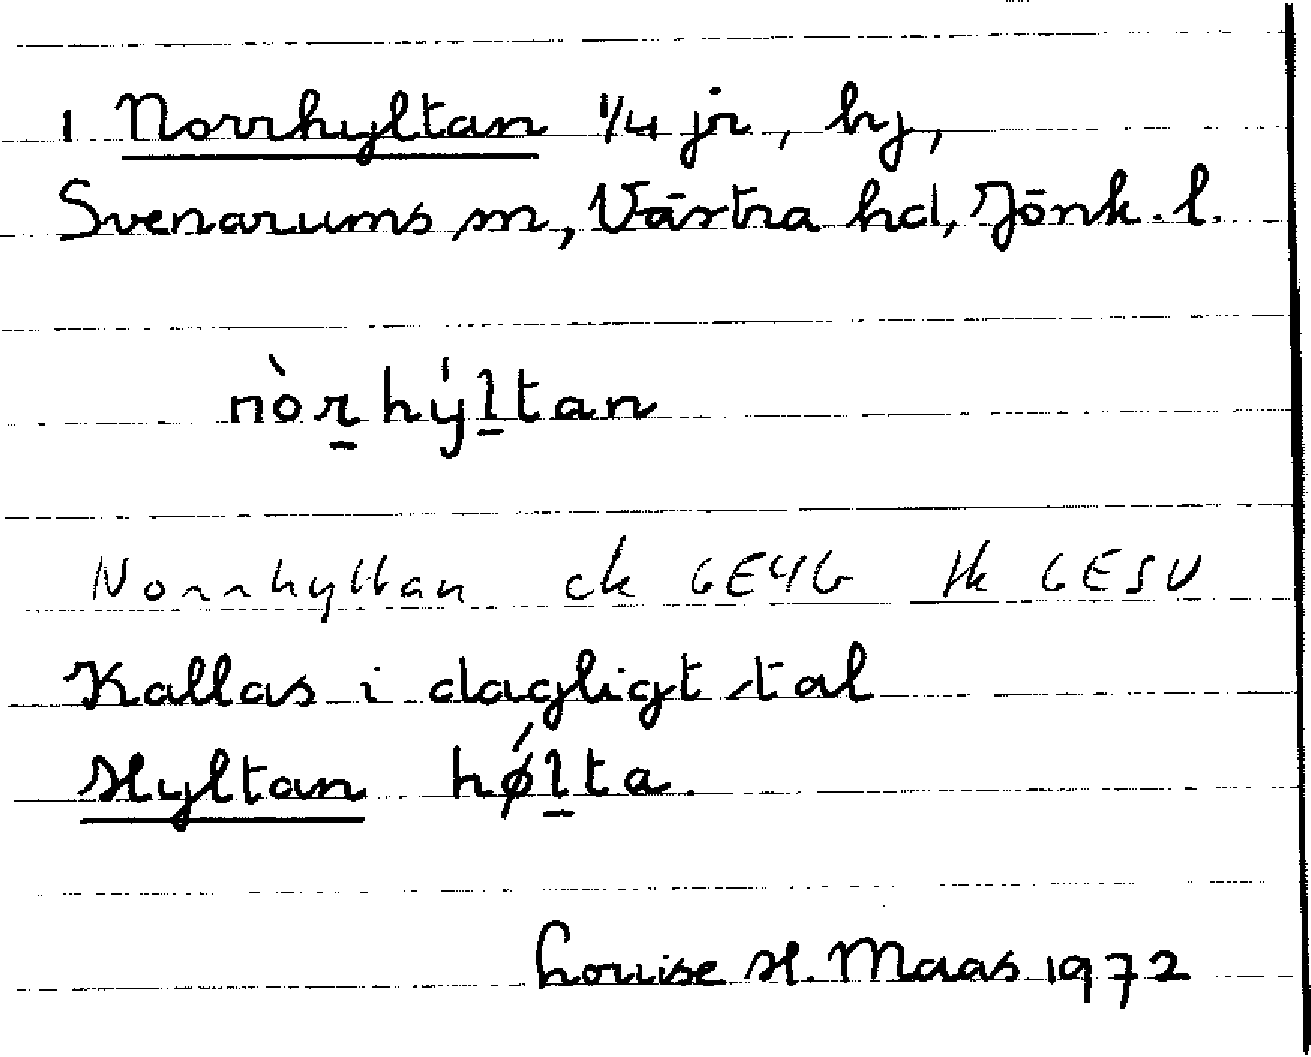 1 Norrhyltan 1/4 jr, by,
Svenarums sn, Västra hd, Jönk. l.
nòr̲hýl̲tan
Norrhyltan ek 6E4G tk 6E5V
Kallas i dagligt tal
Hyltan hǿl̲ta.
Louise H. Maas 1972